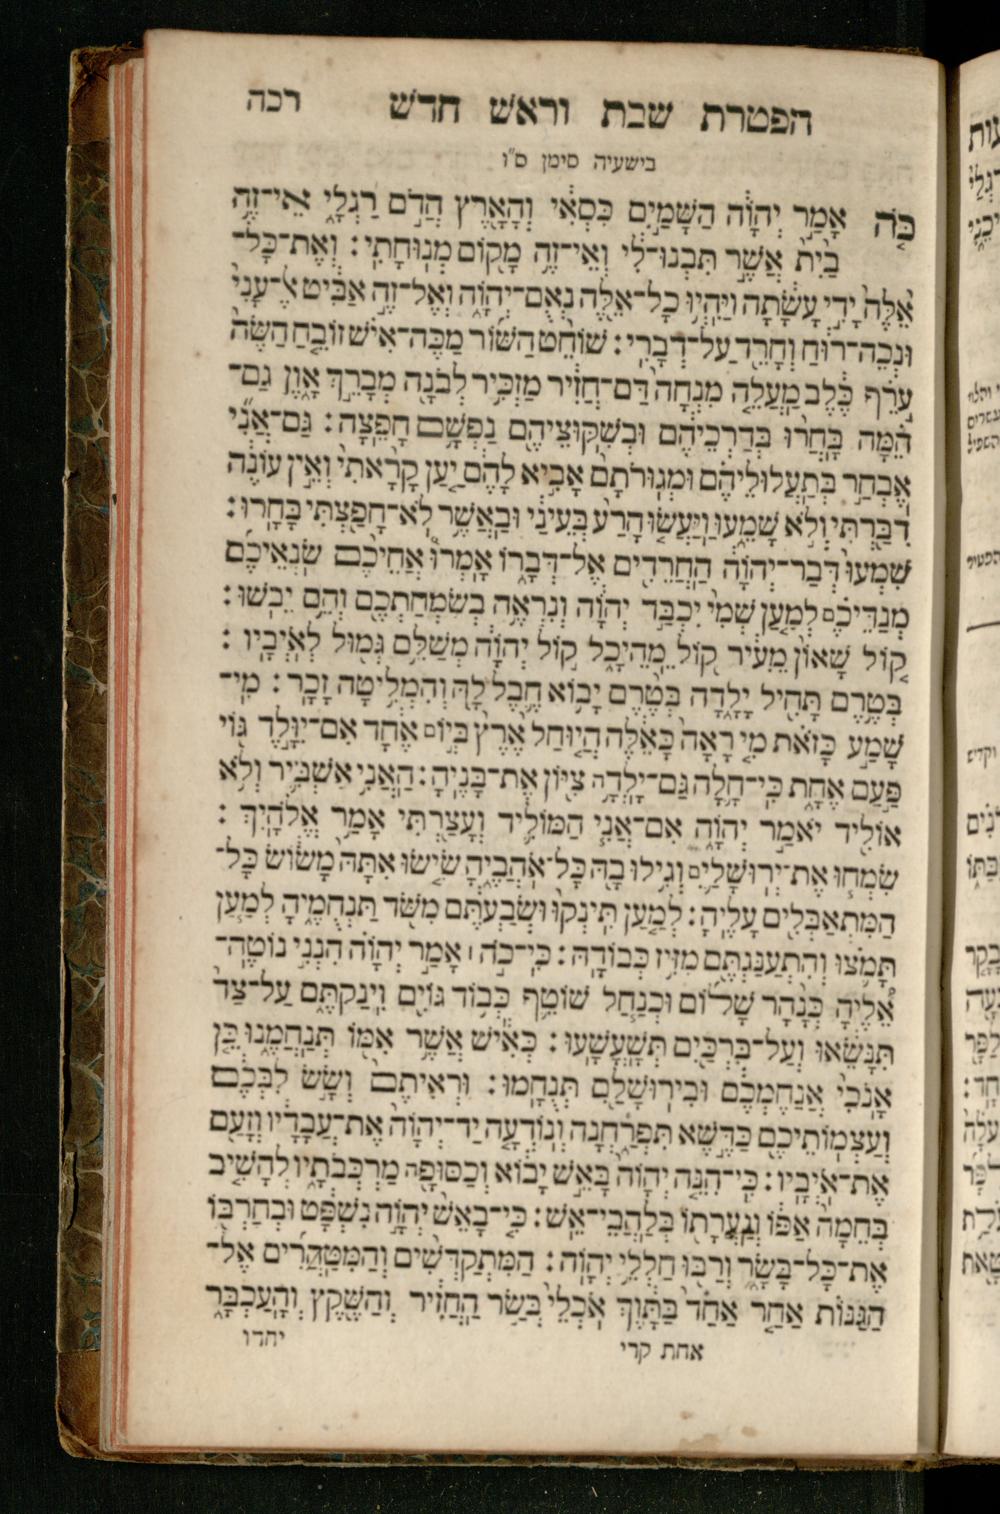 הפטרת שבת וראש חדש רכה
בישעיה סימן ס"ו
כֹּה אָמַר יְהוָֹה הַשָּׁמַיִם כִּסְאִי וְהָאָרֶץ הֲדֹם רַגְלָי אֵי־זֶה
בַיִת אֲשֶׁר תִּבְנוּ־לִי וְאֵי־זֶה מָקוֹם מְנוּחָתִי׃ וְאֶת־כָּל־
אֵלֶּה יָדִי עָשָׂתָה וַיִּהְיוּ כָל־אֵלֶּה נְאֻם־יְהוָֹה וְאֶל־זֶה אַבִּיט אֶל־עָנִי
וּנְכֵה־רוּחַ וְחָרֵד עַל־דְּבָרִי׃ שׁוֹחֵט הַשּׁוֹר מַכֵּה־אִישׁ זוֹבֵחַ הַשֶּׂה
עֹרֵף כֶּלֶב מַעֲלֵה מִנְחָה דַּם־חֲזִיר מַזְכִּיר לְבֹנָה מְבָרֵךְ אָוֶן גַּם־
הֵמָּה בָּחֲרוּ בְּדַרְכֵיהֶם וּבְשִׁקּוּצֵיהֶם נַפְשָׁם חָפֵצָה׃ גַּם־אֲנִי
אֶבְחַר בְּתַעֲלוּלֵיהֶם וּמְגוּרֹתָם אָבִיא לָהֶם יַעַן קָרָאתִי וְאֵין עוֹנֶה
דִּבַּרְתִּי וְלֹא שָׁמֵעוּ וַיַּעֲשׂוּ הָרַע בְּעֵינַי וּבַאֲשֶׁר לֹא־חָפַצְתִּי בָּחָרוּ׃
שִׁמְעוּ דְּבַר־יְהוָֹה הַחֲרֵדִים אֶל־דְּבָרוֹ אָמְרוּ אֲחֵיכֶם שֹׂנְאֵיכֶם
מְנַדֵּיכֶם לְמַעַן שְׁמִי יִכְבַּד יְהוָֹה וְנִרְאֶה בְשִׂמְחַתְכֶם וְהֵם יֵבֹשׁוּ׃
קוֹל שָׁאוֹן מֵעִיר קוֹל מֵהֵיכָל קוֹל יְהוָֹה מְשַׁלֵּם גְּמוּל לְאֹיְבָיו׃
בְּטֶרֶם תָּחִיל יָלָדָה בְּטֶרֶם יָבוֹא חֵבֶל לָהּ וְהִמְלִיטָה זָכָר׃ מִי־
שָׁמַע כָּזֹאת מִי רָאָה כָּאֵלֶּה הֲיוּחַל אֶרֶץ בְּיוֹם אֶחָד אִם־יִוָּלֵד גּוֹי
פַּעַם אֶחָת כִּי־חָלָה גַּם־יָלְדָה צִיּוֹן אֶת־בָּנֶיהָ׃ הַאֲנִי אַשְׁבִּיר וְלֹא
אוֹלִיד יֹאמַר יְהוָֹה אִם־אֲנִי הַמּוֹלִיד וְעָצַרְתִּי אָמַר אֱלֹהָיִךְ׃
שִׂמְחוּ אֶת־יְרוּשָׁלַיִם וְגִילוּ בָהּ כָּל־אֹהֲבֶיהָ שִׂישׂוּ אִתָּהּ מָשׂוֹשׂ כָּל־
הַמִּתְאַבְּלִים עָלֶיהָ׃ לְמַעַן תִּינְקוּ וּשְׂבַעְתֶּם מִשֹּׁד תַּנְחֻמֶיהָ לְמַעַן
תָּמֹצּוּ וְהִתְעַנַּגְתֶּם מִזִּיז כְּבוֹדָהּ׃ כִּי־כֹה ׀ אָמַר יְהוָֹה הִנְנִי נוֹטֶה־
אֵלֶיהָ כְּנָהָר שָׁלוֹם וּכְנַחַל שׁוֹטֵף כְּבוֹד גּוֹיִם וִינַקְתֶּם עַל־צַד
תִּנָּשֵׂאוּ וְעַל־בִּרְכַּיִם תְּשָׁעֳשָׁעוּ׃ כְּאִישׁ אֲשֶׁר אִמּוֹ תְּנַחֲמֶנּוּ כֵּן
אָנֹכִי אֲנַחֶמְכֶם וּבִירוּשָׁלַםִ תְּנֻחָמוּ׃ וּרְאִיתֶם וְשָׂשׂ לִבְּכֶם
וְעַצְמוֹתֵיכֶם כַּדֶּשֶׁא תִפְרַחְנָה וְנוֹדְעָה יַד־יְהוָֹה אֶת־עֲבָדָיו וְזָעַם
אֶת־אֹיְבָיו׃ כִּי־הִנֵּה יְהוָֹה בָּאֵשׁ יָבוֹא וְכַסּוּפָה מַרְכְּבֹתָיו לְהָשִׁיב
בְּחֵמָה אַפּוֹ וְגַעֲרָתוֹ בְּלַהֲבֵי־אֵשׁ׃ כִּי־בָאֵשׁ יְהוָֹה נִשְׁפָּט וּבְחַרְבּוֹ
אֶת־כָּל־בָּשָׂר וְרַבּוּ חַלְלֵי יְהוָֹה׃ הַמִּתְקַדְּשִׁים וְהַמִּטַּהֲרִים אֶל־
הַגַּנּוֹת אַחַר אַחַד בַּתָּוֶךְ אֹכְלֵי בְּשַׂר הַחֲזִיר וְהַשֶּׁקֶץ וְהָעַכְבָּר
אחת קרי יחדו